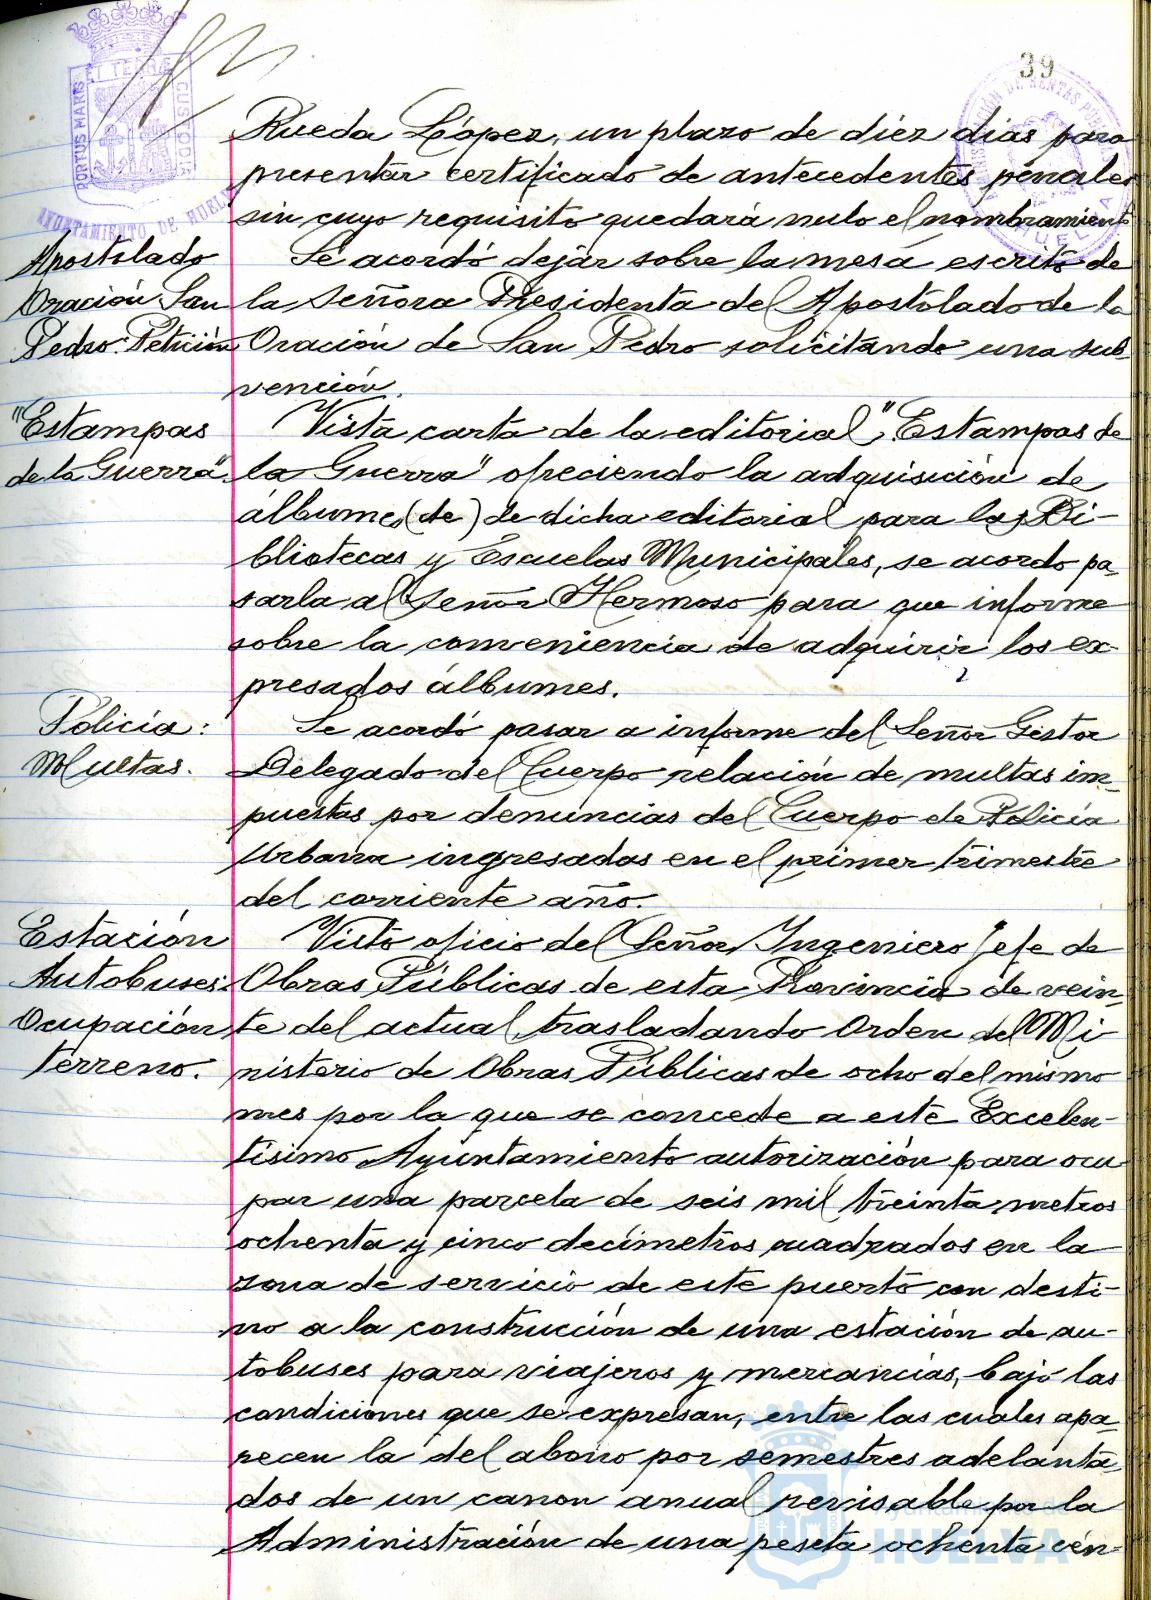 39
PORTUS MARIS ET TERRÆ CUSTODIA
AYUNTAMIENTO DE HUELVA
Rueda López, un plazo de diez dias para
presentar certificado de antecedentes penales
sin cuyo requisito quedará nulo el nombramiento
Apostolado
Oración San
Pedro: Petición
Se acordó dejar sobre la mesa escrito de
la Señora Presidenta del Apostolado de la
Oración de San Pedro solicitando una sub-
vención.
"Estampas
de la Guerra"
Vista carta de la editorial "Estampas de
la Guerra" ofreciendo la adquisición de
álbumes (de) de dicha editorial para las Bi-
bliotecas y Escuelas Municipales, se acordo pa-
sarla al Señor Hermoso para que informe
sobre la conveniencia de adquirir los ex-
presados álbumes.
Policía:
Multas.
Se acordó pasar a informe del Señor Gestor
Delegado del Cuerpo relación de multas im-
puestas por denuncias del Cuerpo de Policía
Urbana ingresadas en el primer trimestre
del corriente año.
Estación
Autobuses:
Ocupación
terreno.
Visto oficio del Señor Ingeniero Jefe de
Obras Públicas de esta Provincia de vein-
te del actual, trasladando Orden del Mi
nisterio de Obras Públicas de ocho del mismo
mes por la que se concede a este Excelen-
tísimo Ayuntamiento autorización para ocu
par una parcela de seis mil treinta metros
ochenta y cinco decímetros cuadrados en la
zona de servicio de este puerto con desti-
no a la construcción de una estación de au-
tobuses para viajeros y mercancías, bajo las
condiciones que se expresan, entre las cuales apa-
recen la del abono por semestres adelanta-
dos de un canon anual revisable por la
Administración de una peseta ochenta cén-
Ayuntamiento de
HUELVA